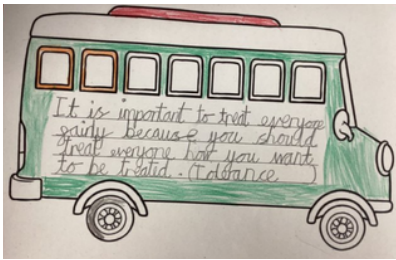 It is important to treat everyone
fairly because you should
treat everyone how you want
to be treated. (Tolerance )